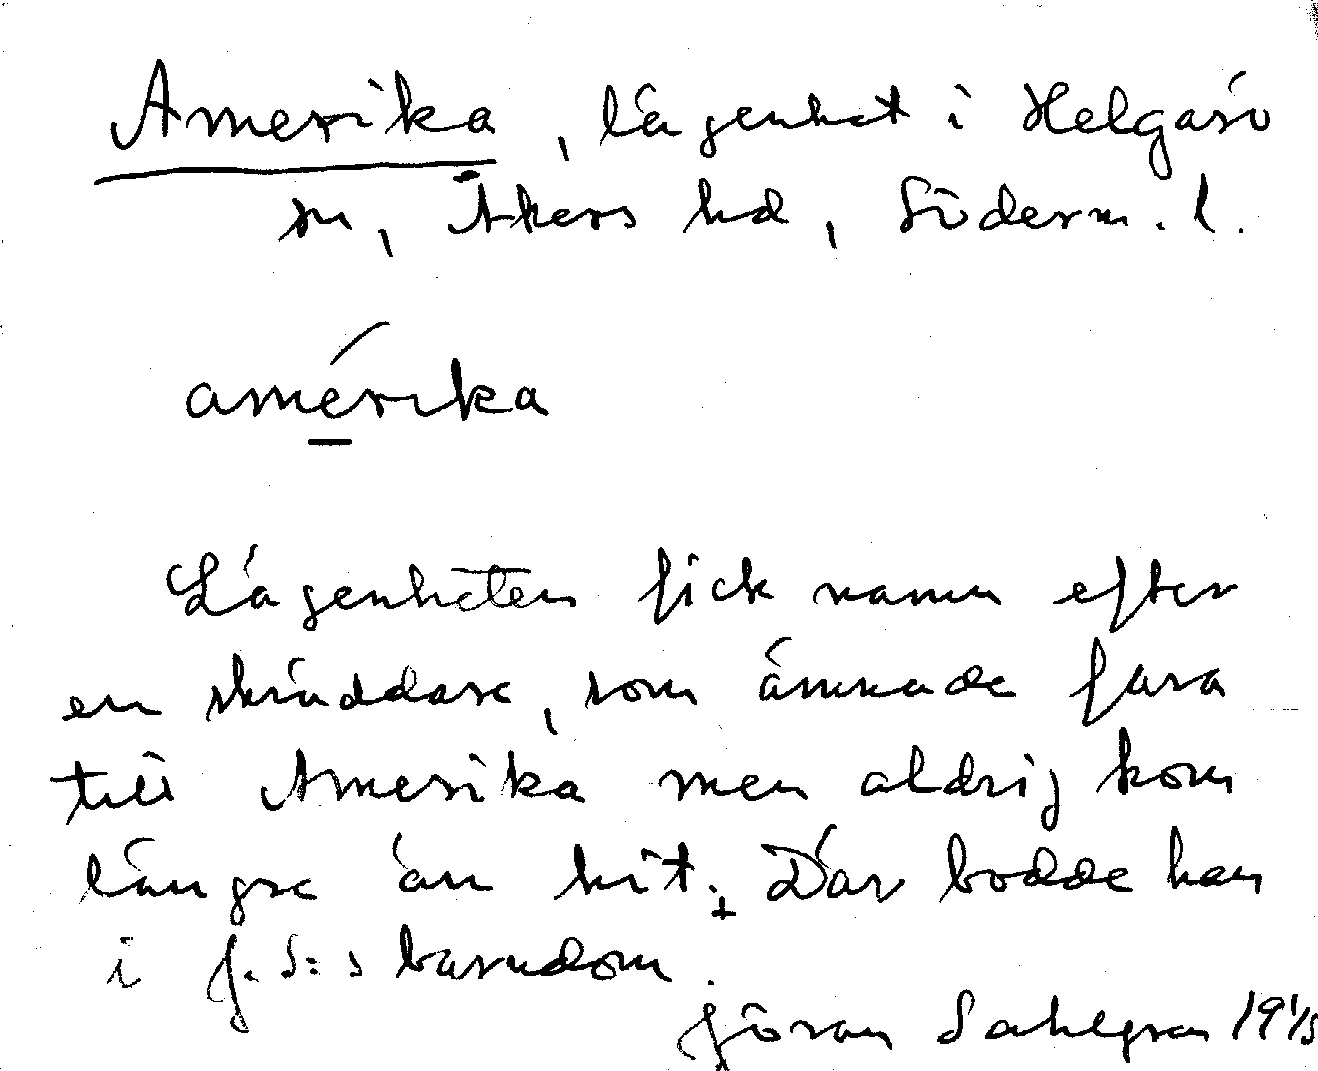 Amerika, lägenhet i Helgarö
sn, Åkers hd, Söderm. l.
amérika
Lägenheten fick namn efter
en skräddare, som ämnade fara
till Amerika men aldrig kom
längre än hit. Där bodde han
i J. S:s barndom.
Jöran Sahlgren 19